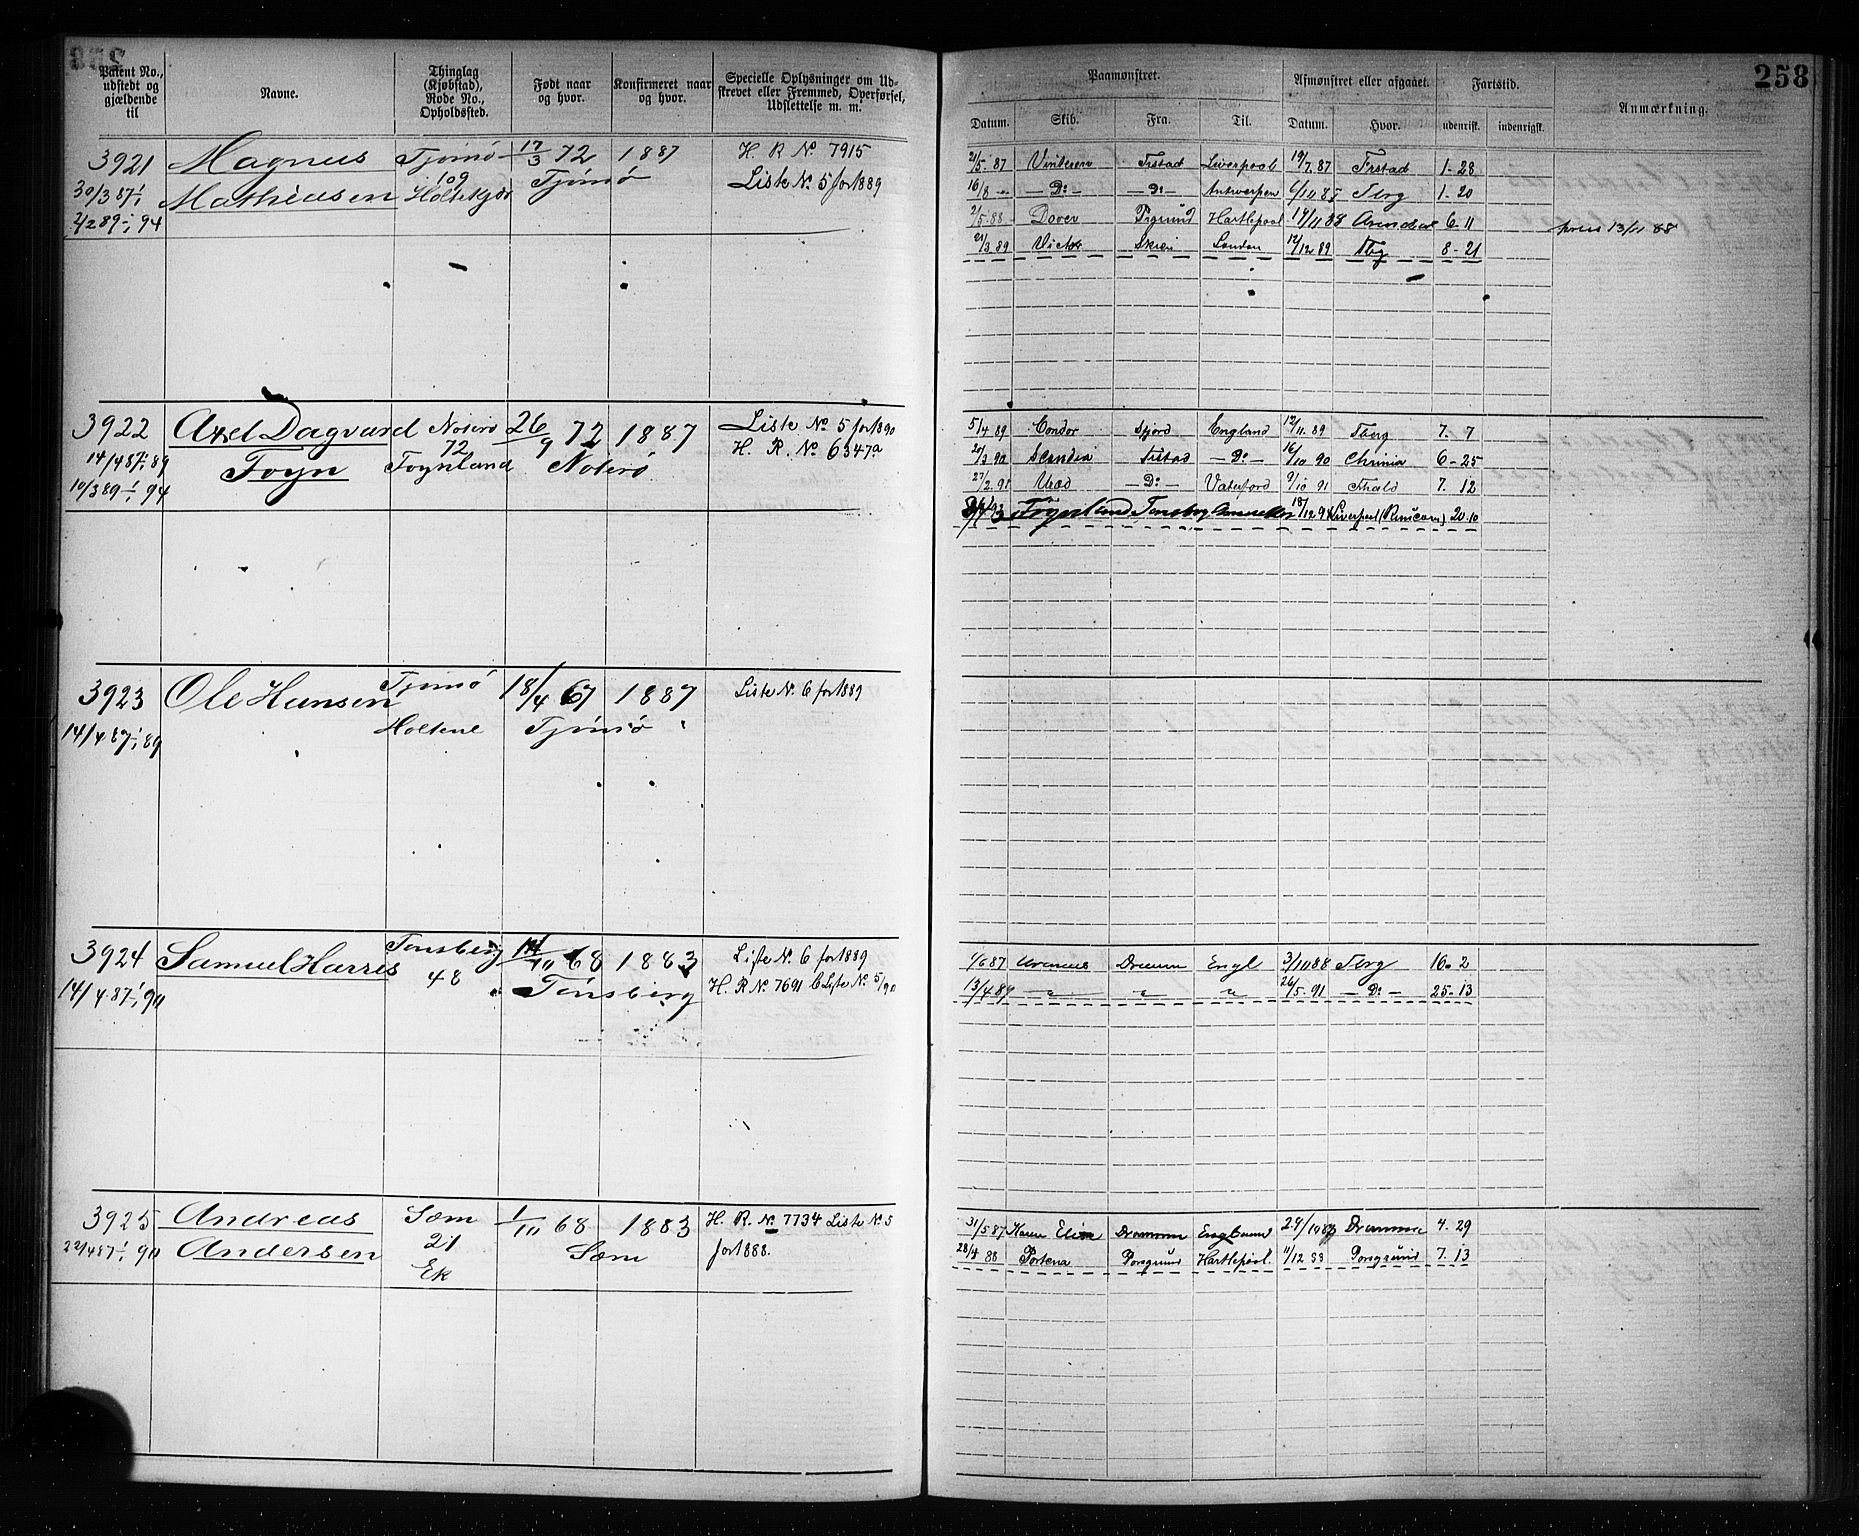 258
Patent No., udstedt og gjældende til
Navne.
Thinglag (Kjøbstad), Rode No., Opholdssted.
Født naar og hvor.
Konfirmeret naar og hvor.
Specielle Oplysninger om Udskrevet eller Fremmed, Overførsel, Udslettelse m. m.
Paamønstret.
Afmønstret eller afgaaet.
Fartstid.
Anmærkning.
Datum. Skib. Fra. Til. Datum. Hvor. udenrigsk. indenrigsk.
3921 Magnus Tjømø 17/3 72 1887 H. R No. 7915
30/3 87 Mathiasen 109 Holtekjær Tjømø Liste No. 5 for 1889
2/2 89 94
21/5 87 Frstad Liverpool 19/7 87 Frstad 1-28
16/8 - Do - - Do - Antwerpen 85 Tbrg 1-20
5.88 Dover Hartlepool 14/11 88 Arendal 6-11 13/11 88
21/3 89 Victor Skien London 12/12 89 Tbg 8-21
3922 Axel Dagvard Nøterø 26/9 72 1887 Liste No 5 for 1890
14/4 87 89 Foyn 72 Foynland Nøterø H. R. No 6347a
10/3 89 94
5/4 89 Condor Fjord England 12/11 89 Tbrg 7. 7
3 90 Scandia Frstad - Do - 16/10 90 Chrinia 6-25
27/2 91 - Do - Vaterford 9/10 91 Frhald 7. 12
93 Föynland Tønsbrg 18/12 94 Liverpool (Runcorn) 20.10
3923 Ole Hansen Tjømø 18/4 67 1887 Liste No. 6 for 1889
14/4 87 89 Holtene Tjømø
3924 Samuel Harres Tønsberg 10 68 1883 Liste No. 6 for 1889
14/4 87 90 48 Tønsberg H. R No. 7691 Liste No. 5/90
1/6 87 Uranus Dramm Engl 3/10 88 Tbrg 16. 2
13/4 89 26/5. 91 - Do - 25-13
3925 Andreas Sæm 1/10 68 1883 H. R. No 7734 Liste No. 5
22/4 87 90 Andersen 21 Ek Sæm for 1888.
31/5 87 Karen Elise Dramm England Dramm 4. 29
28/4 88 Porsgrund Hartlepool. 11/12 88 Porsgrund 7. 13